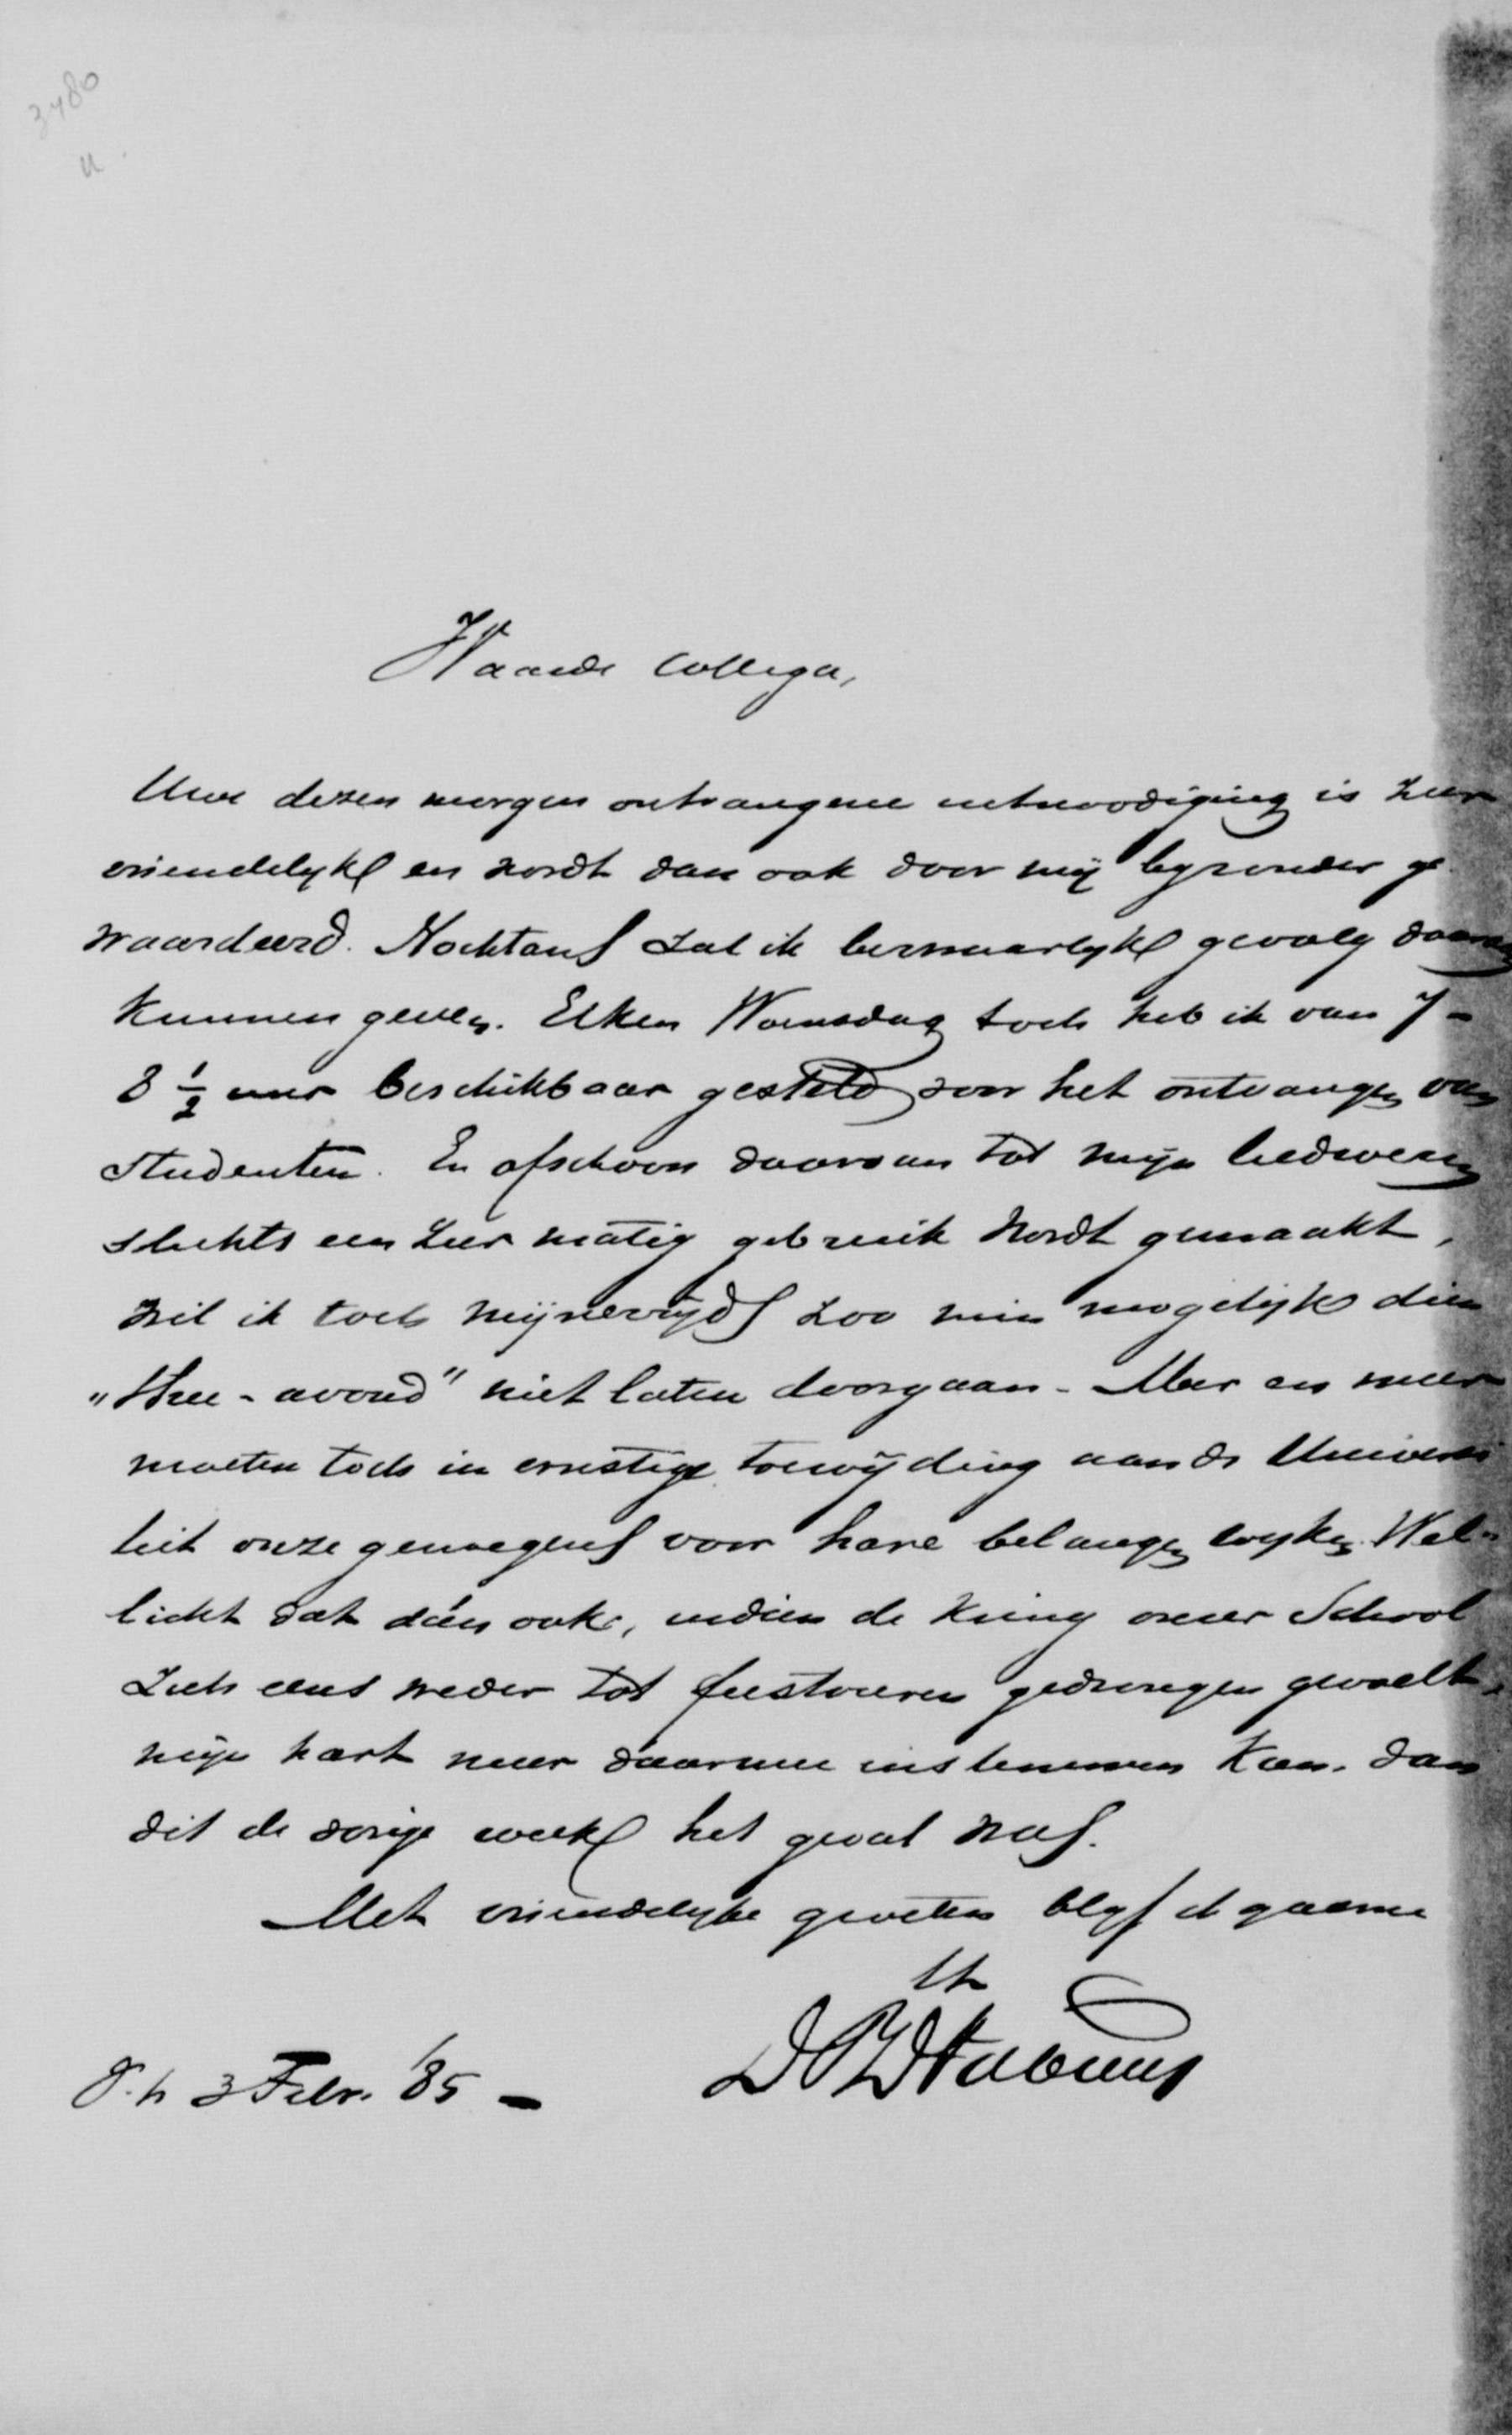 3480
u
Waarde Collega,
Uwe dezen morgen ontvangene uitnoodiging is zeer
vriendelyk en wordt dan ook door mij byzonder ge
waardeerd. Nochtans zal ik bezwaarlyk gevolg daaraan
kunnen geven. Elken Woensdag toch heb ik van 7 -
8 1/2 uur beschikbaar gesteld voor het ontvangen van
studenten. En ofschoon daarvan tot mijn leedwezen
slechts een zeer matig gebruik wordt gemaakt,
wil ik toch mijnerzyds zoo min mogelijk dien
"thee-avond" niet laten doorgaan. Meer en meer
moeten toch in ernstige toewijding aan de Universi
teit onze genegens voor hare belangen blyken. Wel-
licht dat dán ook, indien de kring onzer School
zich eens weder tot feestvieren gedrongen gevoelt,
mijn hart meer daarmee instemmen kan, dan
dit de vorige week het geval was.
Met vriendelyke groeten blyf ik gaarne
Uw
D P D Fabius
3 Febr. '85 -